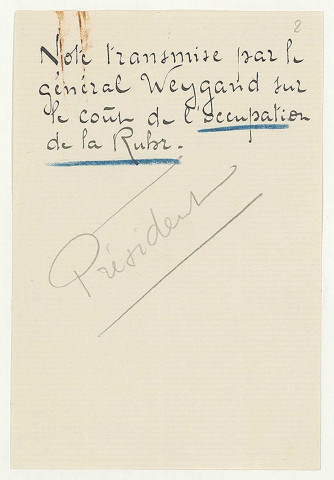 8
Note transmise par le
général Weygand sur
le coût de l'occupation
de la Ruhr.
Président